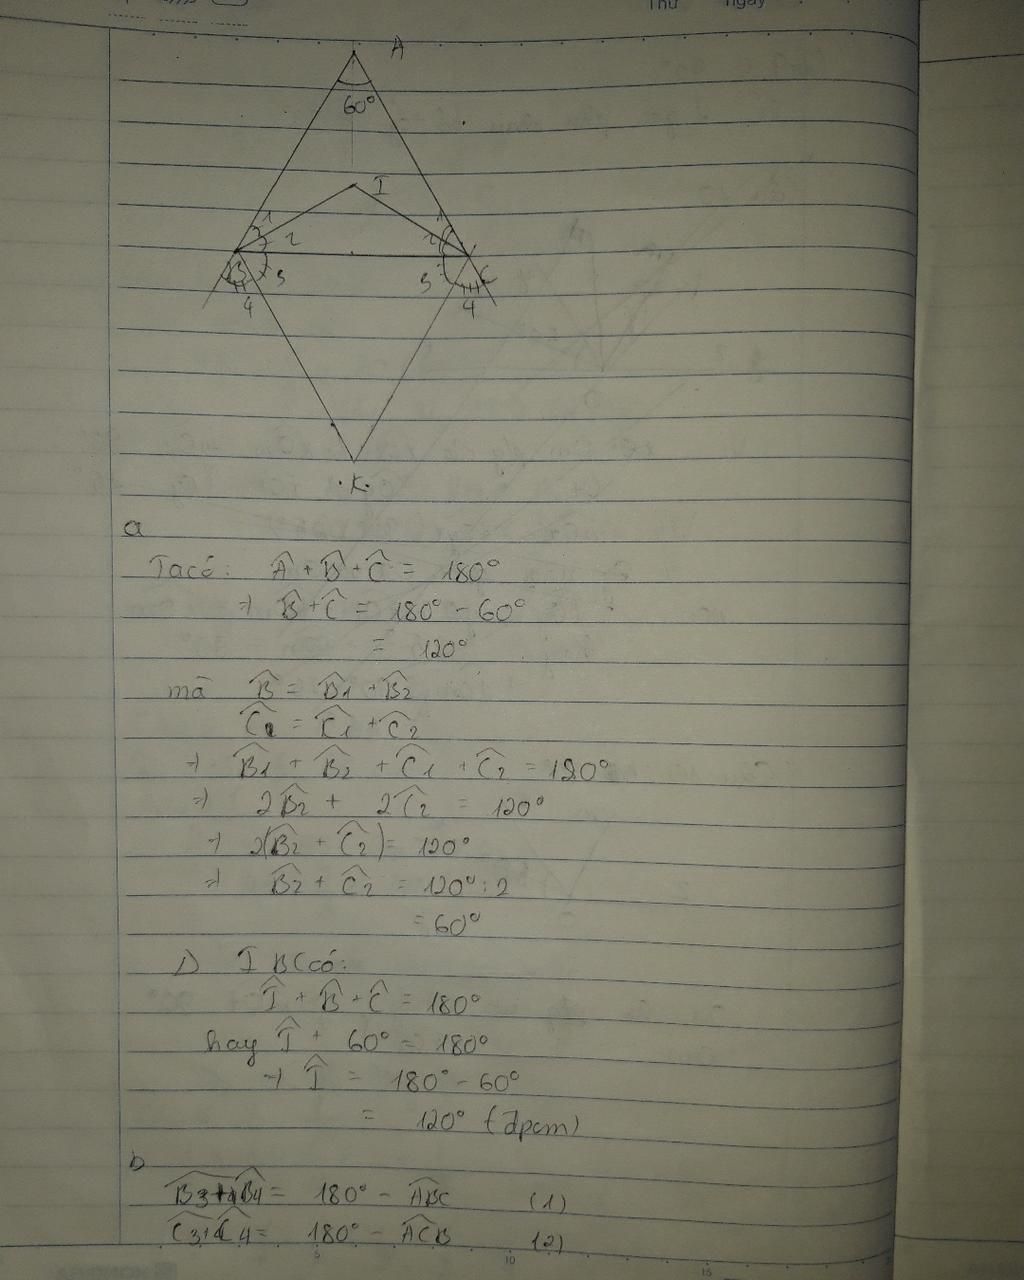 Thứ ngày
A
60°
I
1 1
2 2
B 3 3 C
4 4
K
a
Ta có: Â + B̂ + Ĉ = 180°
⇒ B̂ + Ĉ = 180° - 60°
= 120°
mà B̂ = B̂1 + B̂2
Ĉ = Ĉ1 + Ĉ2
⇒ B̂1 + B̂2 + Ĉ1 + Ĉ2 = 120°
⇒ 2B̂2 + 2Ĉ2 = 120°
⇒ 2(B̂2 + Ĉ2) = 120°
⇒ B̂2 + Ĉ2 = 120° : 2
= 60°
Δ IBC có:
Î + B̂ + Ĉ = 180°
hay Î + 60° = 180°
⇒ Î = 180° - 60°
= 120° (đpcm)
b
B̂3 + B̂4 = 180° - ABC (1)
Ĉ3 + Ĉ4 = 180° - ACB (2)
5 10 15